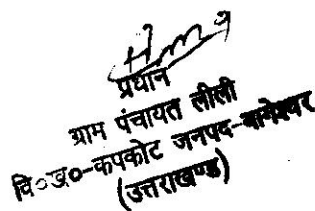 प्रधान
ग्राम पंचायत लीली
वि०ख०-कपकोट जनपद-बागेश्वर
(उत्तराखण्ड)